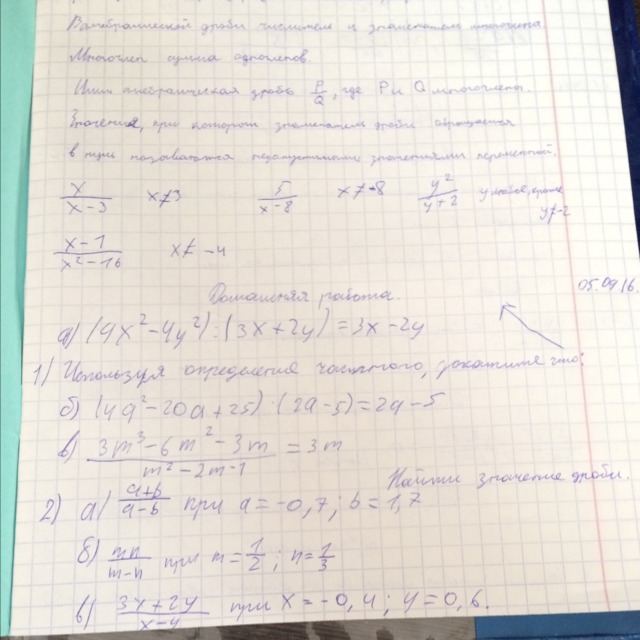 В алгебраической дроби числитель и знаменатель многочлены.
Многочлен сумма одночленов.
алгебраическая дробь P/Q, где P и Q многочлены.
Значения, при котором знаменатель дроби обращается
в нуль называются недопустимыми значениями переменной.
x/(x-3) x≠3 5/(x-8) x≠-8 y²/(y+2) y любое, кроме
y≠-2
(x-1)/(x²-16) x≠ -4
05.09.16.
Домашняя работа.
а) (9x²-4y²):(3x+2y)=3x-2y
1) Используя определение частного, докажите что:
б) (4a²-20a+25):(2a-5)=2a-5
в) (3m³-6m²-3m)/(m²-2m-1)=3m
Найти значение дроби.
2) а) (a+b)/(a-b) при a=-0,7; b=1,7
б) mn/(m-n) при m=1/2; n=1/3
в) (3x+2y)/(x-y) при x=-0,4; y=0,6.